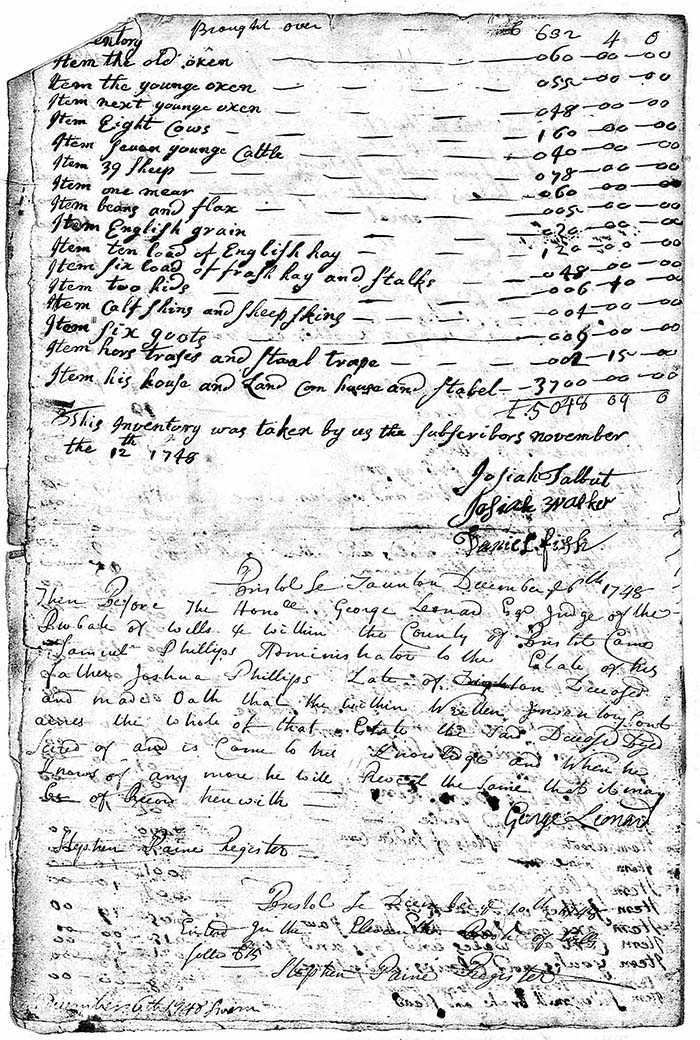 Inventory Brought over £ 632 4 0
Item the old oxen 060-00-00
Item the younge oxen 055-00-00
Item next younge oxen 048-00-00
Item Eight Cows 160-00-00
Item Seven younge Cattle 040-00-00
Item 39 Sheep 078-00-00
Item one mear 060-00-00
Item beans and flax 005-00-00
Item English grain 020-00-00
Item ten load of English hay 120-00-00
Item six load of frash hay and stalks 048-00-00
Item two hids 006-10-00
Item Calf skins and sheep skins 004-00-00
Item six goots 009-00-00
Item hors trases and staal trape 002-15-00
Item his house and Land Corn house and stabel 3700-00-00
£ 5048 09 0
This Inventory was taken by us the subscribors november
the 12th 1748
Josiah Talbut
Josiah Walker
Daniel fish
Bristol Sc Taunton December ye 6th 1748
Then Before The Honole George Leonard Esqr Judge of the
Probate of wills &c within the County of Bristol Came
Samuel Phillips Administrator to the Estate of his
father Joshua Phillips Late of Deceased
and made Oath that the within Written Inventory Cont
aines the whole of that Estate the Said Deceased Dyed
Seized of and is Come to his Knowledge and When he
Knows of any more he will Reveal the same that it may
be of Record herewith
George Leonard
Stephen Paine Register
Bristol Sc December ye 10th 1748
Entred In the Eleventh Book of
folio
Stephen Paine Register
December 6th 1748 Sworn